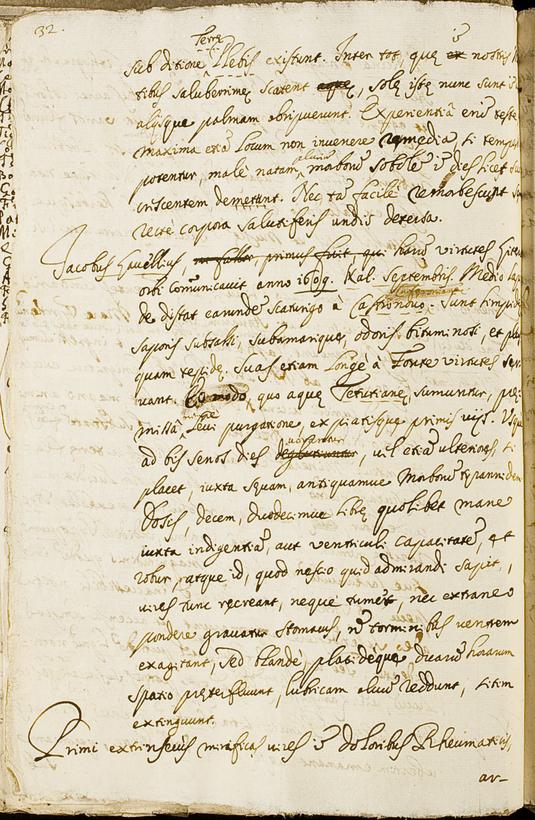 32.
Terrę
sub ditione Plebis existunt. Inter tot, quę ex nostris
tibus saluberrimę scatent aquę, solę istę nunc sunt
alijsque palmam obripuerunt. Experientiâ enim teste
maxima etiam locum non invenere remedia, si tempus
potentur, male natam, pluries morborum sobolem in dies licet
criscentem demetunt. Nec tam facile remabescunt
recté corpora salutiferis undis detersa.
Jacobus primus fuit, qui harum virtutes
orbi comunicavit anno 1609. Kal. Septembris. Medio
de distat earumdem scaturigo à Castronovo. Sunt limpidę
saporis subsalsi, subamarique, odoris bituminosi, et plus
quam tepidę. Suas etiam longè à Fonte virtutes ser-
vant. Eo modo, quo aquę Tetutianę sumuntur, prę-
missâ nempe levi purgatione, expiatisque primis vijs. Usque
ad bis senos dies deglutiuntur, vel etiam ulteriores, si
placet, iuxta novam, antiquamve morborum tyrannidem
Dosis, decem, duodecimve librę quolibet mane
iuxta indigentiam, aut ventriculi capacitatem, et
robur, atque id, quod nescio quid admirandi sapit,
vires tunc recreant, neque tument, nec extraneo
pondere gravatur stomacus, non torminibus ventrem
exagitant, sed blandè, placideque duarum horarum
spatio pręterfluunt, lubricam alvum reddunt, sitim
extinguunt.
Primi extrinsecus mirificas vires in doloribus Rheumaticis,
ar-